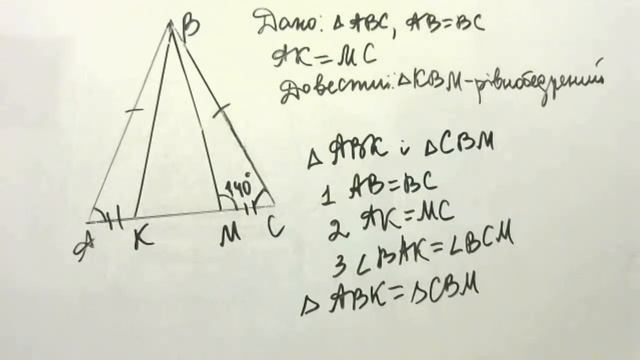 B
Дано: △ABC, AB=BC
AK=MC
Довести: △KBM-рівнобедрений
△ABK і △CBM
1 AB=BC
2 AK=MC
3 ∠BAK=∠BCM
△ABK=△CBM
140°
A K M C